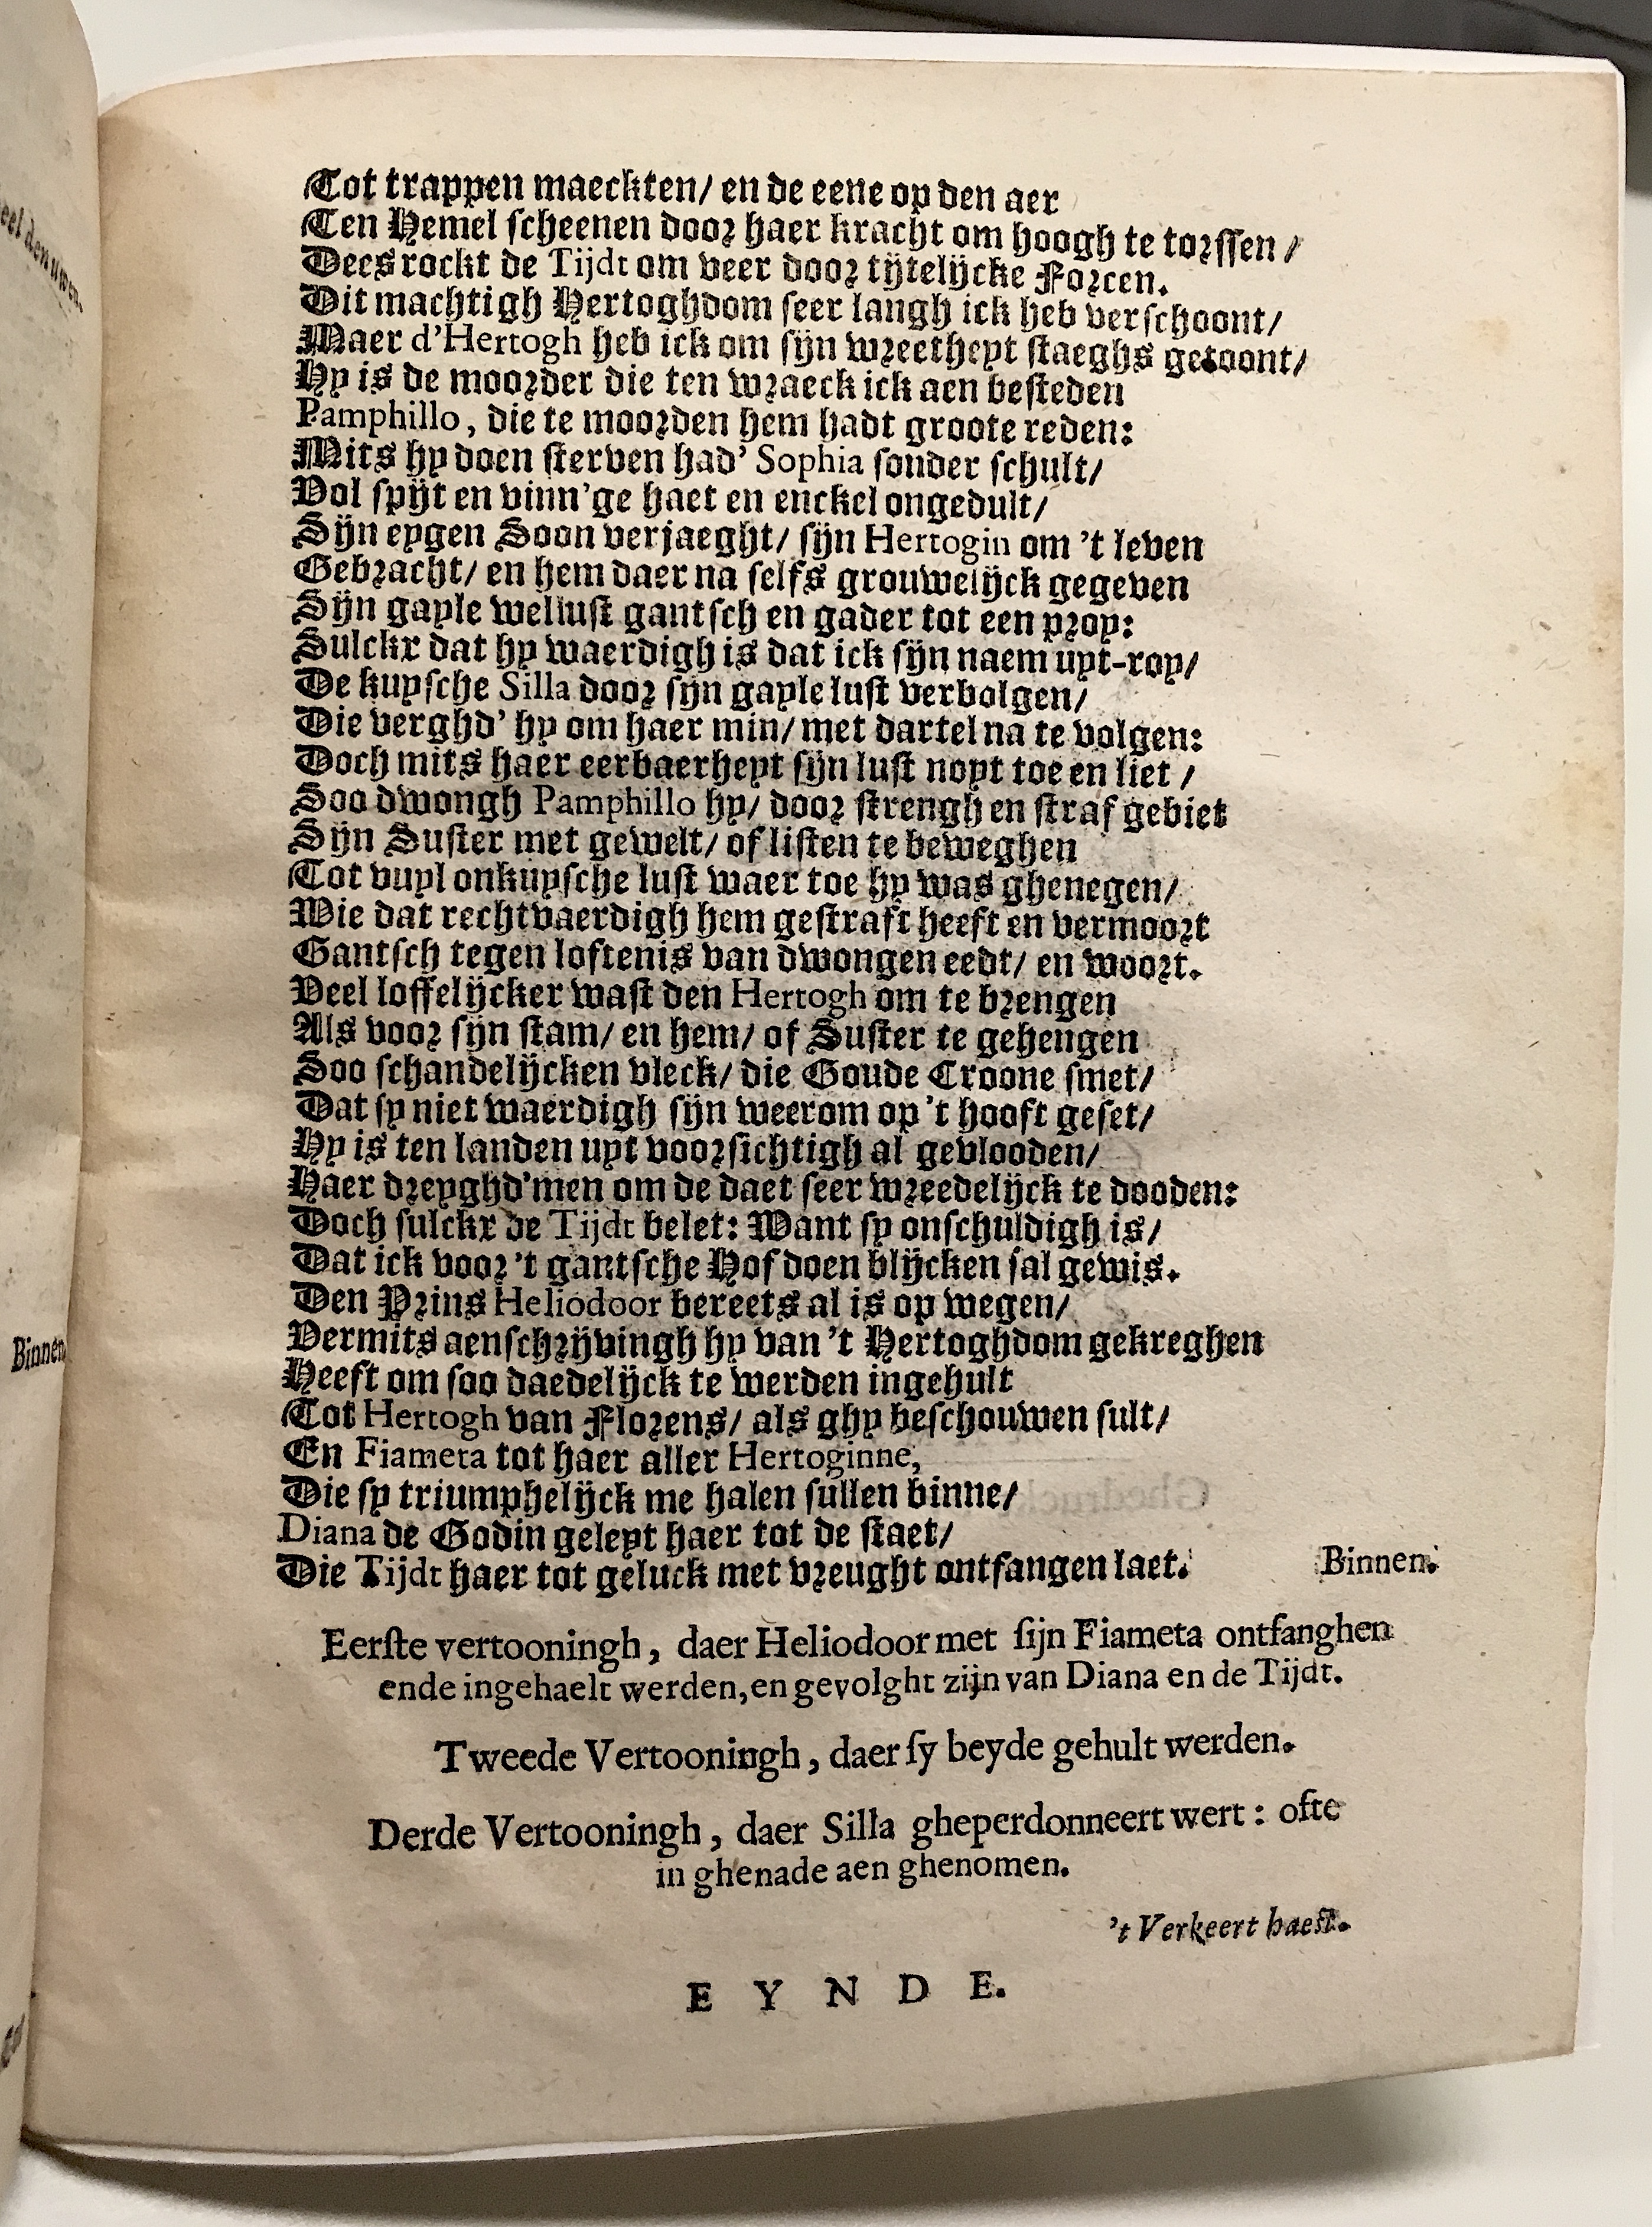 Tot trappen maeckten/ en de eene op den aer
Ten Hemel scheenen door haer kracht om hoogh te torssen/
Dees rockt de Tijdt om veer door tijtelijcke Forcen.
Dit machtigh Hertoghdom seer langh ick heb verschoont/
Maer d'Hertogh heb ick om sijn wreetheyt staeghs getoont/
Hy is de moorder die ten wraeck ick aen besteden
Pamphillo, die te moorden hem hadt groote reden:
Mits hy doen sterven had' Sophia sonder schult/
Vol spijt en vinn'ge haet en enckel ongedult/
Sijn eygen Soon verjaeght/ sijn Hertogin om 't leven
Gebracht/ en hem daer na selfs grouwelijck gegeven
Sijn gayle wellust gantsch en gader tot een proy:
Sulckx dat hy waerdigh is dat ick sijn naem uyt-roy/
De kuysche Silla door sijn gayle lust verbolgen/
Die verghd' hy om haer min/ met dartel na te volgen:
Doch mits haer eerbaerheyt sijn lust noyt toe en liet/
Soo dwongh Pamphillo hy/ door strengh en straf gebiet
Sijn Suster met gewelt/ of listen te beweghen
Tot vuyl onkuysche lust waer toe hy was ghenegen/
Wie dat rechtvaerdigh hem gestraft heeft en vermoort
Gantsch tegen loftenis van dwongen eedt/ en woort.
Veel loffelijcker wast den Hertogh om te brengen
Als voor sijn stam/ en hem/ of Suster te gehengen
Soo schandelijcken vleck/ die Goude Croone smet/
Dat sy niet waerdigh sijn weerom op 't hooft geset/
Hy is ten landen uyt voorsichtigh al gevlooden/
Haer dreyghd'men om de daet seer wreedelijck te dooden:
Doch sulckx de Tijdt belet: Want sy onschuldigh is/
Dat ick voor 't gantsche Hof doen blijcken sal gewis.
Den Prins Heliodoor bereets al is op wegen/
Vermits aenschrijvingh hy van 't Hertoghdom gekreghen
Heeft om soo daedelijck te werden ingehult
Tot Hertogh van Florens/ als ghy beschouwen sult/
En Fiameta tot haer aller Hertoginne,
Die sy triumphelijck me halen sullen binne/
Diana de Godin geleyt haer tot de staet/
Die Tijdt haer tot geluck met vreught ontfangen laet. Binnen.
Eerste vertooningh, daer Heliodoor met sijn Fiameta ontfanghen
ende ingehaelt werden, en gevolght zijn van Diana en de Tijdt.
Tweede Vertooningh, daer sy beyde gehult werden.
Derde Vertooningh, daer Silla gheperdonneert wert: ofte
in ghenade aen ghenomen.
't Verkeert haest.
EYNDE.
Binnen